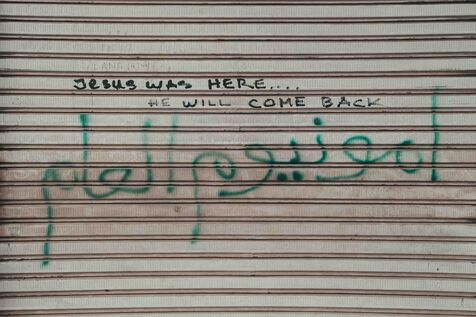 Jesus was HERE....
HE WILL COME BACK
امونيوم